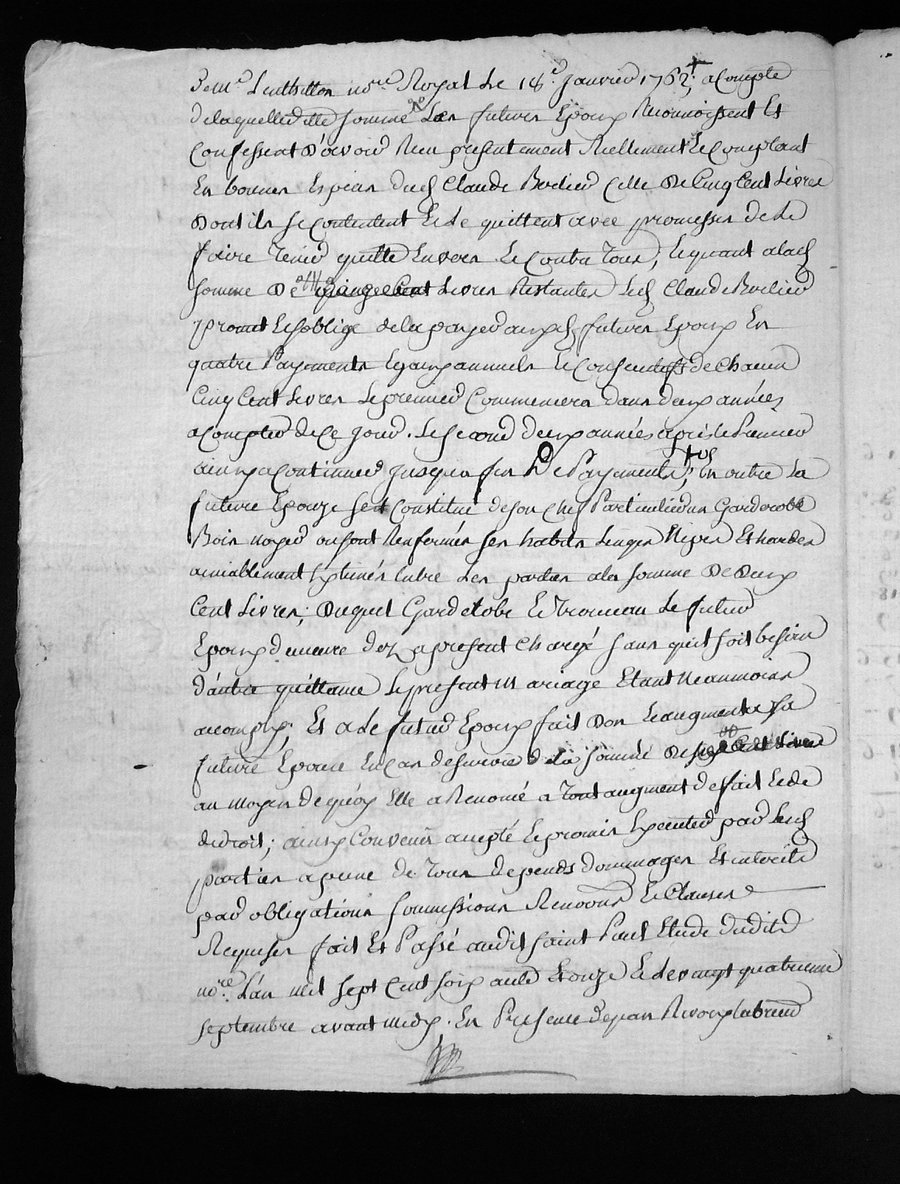 nore Royal Le 18e Janvier 1762; acompte
delaquelle ditte somme Les futurs Epoux Reconnoissent Et
Confessent D'avoir Reçu présentement Reellement Et Comptant
En bonnes Especes dud Claude Berlieu Celle De Cinq Cent Livres
Dont ils se Contentent Et Le quittent avec promesses de Le
faire Tenir quitte Envers Et Contre Tous, Et quant a lad
somme De Livres Restantes Led Claude Berlieu
promet Et soblige de la payer auxd futurs Epoux En
quatre Payements Egaux annuels Et Consecutifs de Chacun
Cinq Cent Livres Le premier Commencera dans deux années
a Compter de Ce jour. Le second deux années après le Premier
ainsy a Continuer jusqua fin De Payement, En outre La
future Epouze se Constitue de son Chef Particulier un Garderobe
Bois noyer ou sont Renfermés ses habits Linges Nipes Et hardes
amiablement Estimés Entre Les parties a la somme De Deux
Cent Livres; Duquel Garderobe Et Trousseau Le futur
Epoux demeure dez a present Chargé sans quil soit besoin
d'autre quittance Le present mariage Etant Neanmoins
acomply. Et a Le futur Epoux fait Don Et augmente sa
future Epouze En Cas de survie de La somme De Cent Livres
au moyen de quoy Elle a Renoncé a Tout augment de fait Et de
de droit; ainsy Convenu accepté Et promis Executer par Lesd
parties a peine de Tous depends dommages Et interets
par obligations soumissions Renons Et Clauses
Requises fait Et Passé audit saint Paul Etude dudit
nore L'an mil sept Cent soix ante Et onze Et Le vingt quatrieme
septembre avant midy. En Presence de jean